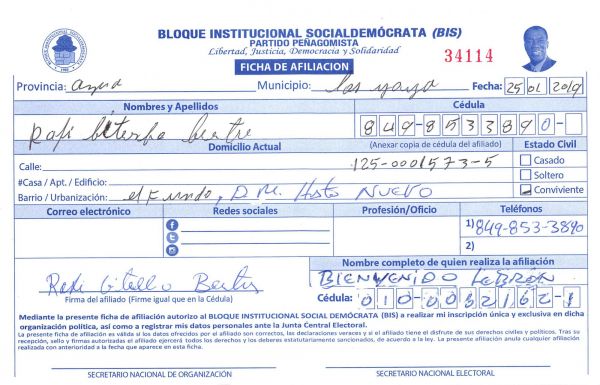 BLOQUE INSTITUCIONAL SOCIALDEMÓCRATA (BIS)
PARTIDO PEÑAGOMISTA
Libertad, Justicia, Democracia y Solidaridad
34114
FICHA DE AFILIACION
Provincia: Azua Municipio: Las yaya Fecha: 25 01 2019
Nombres y Apellidos Cédula
Rafi 849-8533890-
Domicilio Actual (Anexar copia de cédula del afiliado) Estado Civil
Calle: 125-0001573-5 Casado
#Casa / Apt. / Edificio: Soltero
Barrio / Urbanización: el Fundo, D.M. Hato NUEVO Conviviente
Correo electrónico Redes sociales Profesión/Oficio Teléfonos
1) 849-853-3890
2)
Nombre completo de quien realiza la afiliación
BIENVENIDO LEBRÓN
Firma del afiliado (Firme igual que en la Cédula) Cédula: 010-0032162-1
Mediante la presente ficha de afiliación autorizo al BLOQUE INSTITUCIONAL SOCIAL DEMÓCRATA (BIS) a realizar mi inscripción única y exclusiva en dicha
organización política, así como a registrar mis datos personales ante la Junta Central Electoral.
La presente ficha de afiliación es válida si los datos ofrecidos por el afiliado son correctos, las declaraciones veraces y si el afiliado tiene el disfrute de sus derechos civiles y políticos. Tras su
recepción, sello y firmas autorizadas el afiliado ejercerá todos los derechos y los deberes estatutariamente sancionados, de acuerdo a la ley. La presente afiliación anula cualquier afiliación
realizada con anterioridad a la fecha que aparece en esta ficha.
SECRETARIO NACIONAL DE ORGANIZACIÓN SECRETARIO NACIONAL ELECTORAL